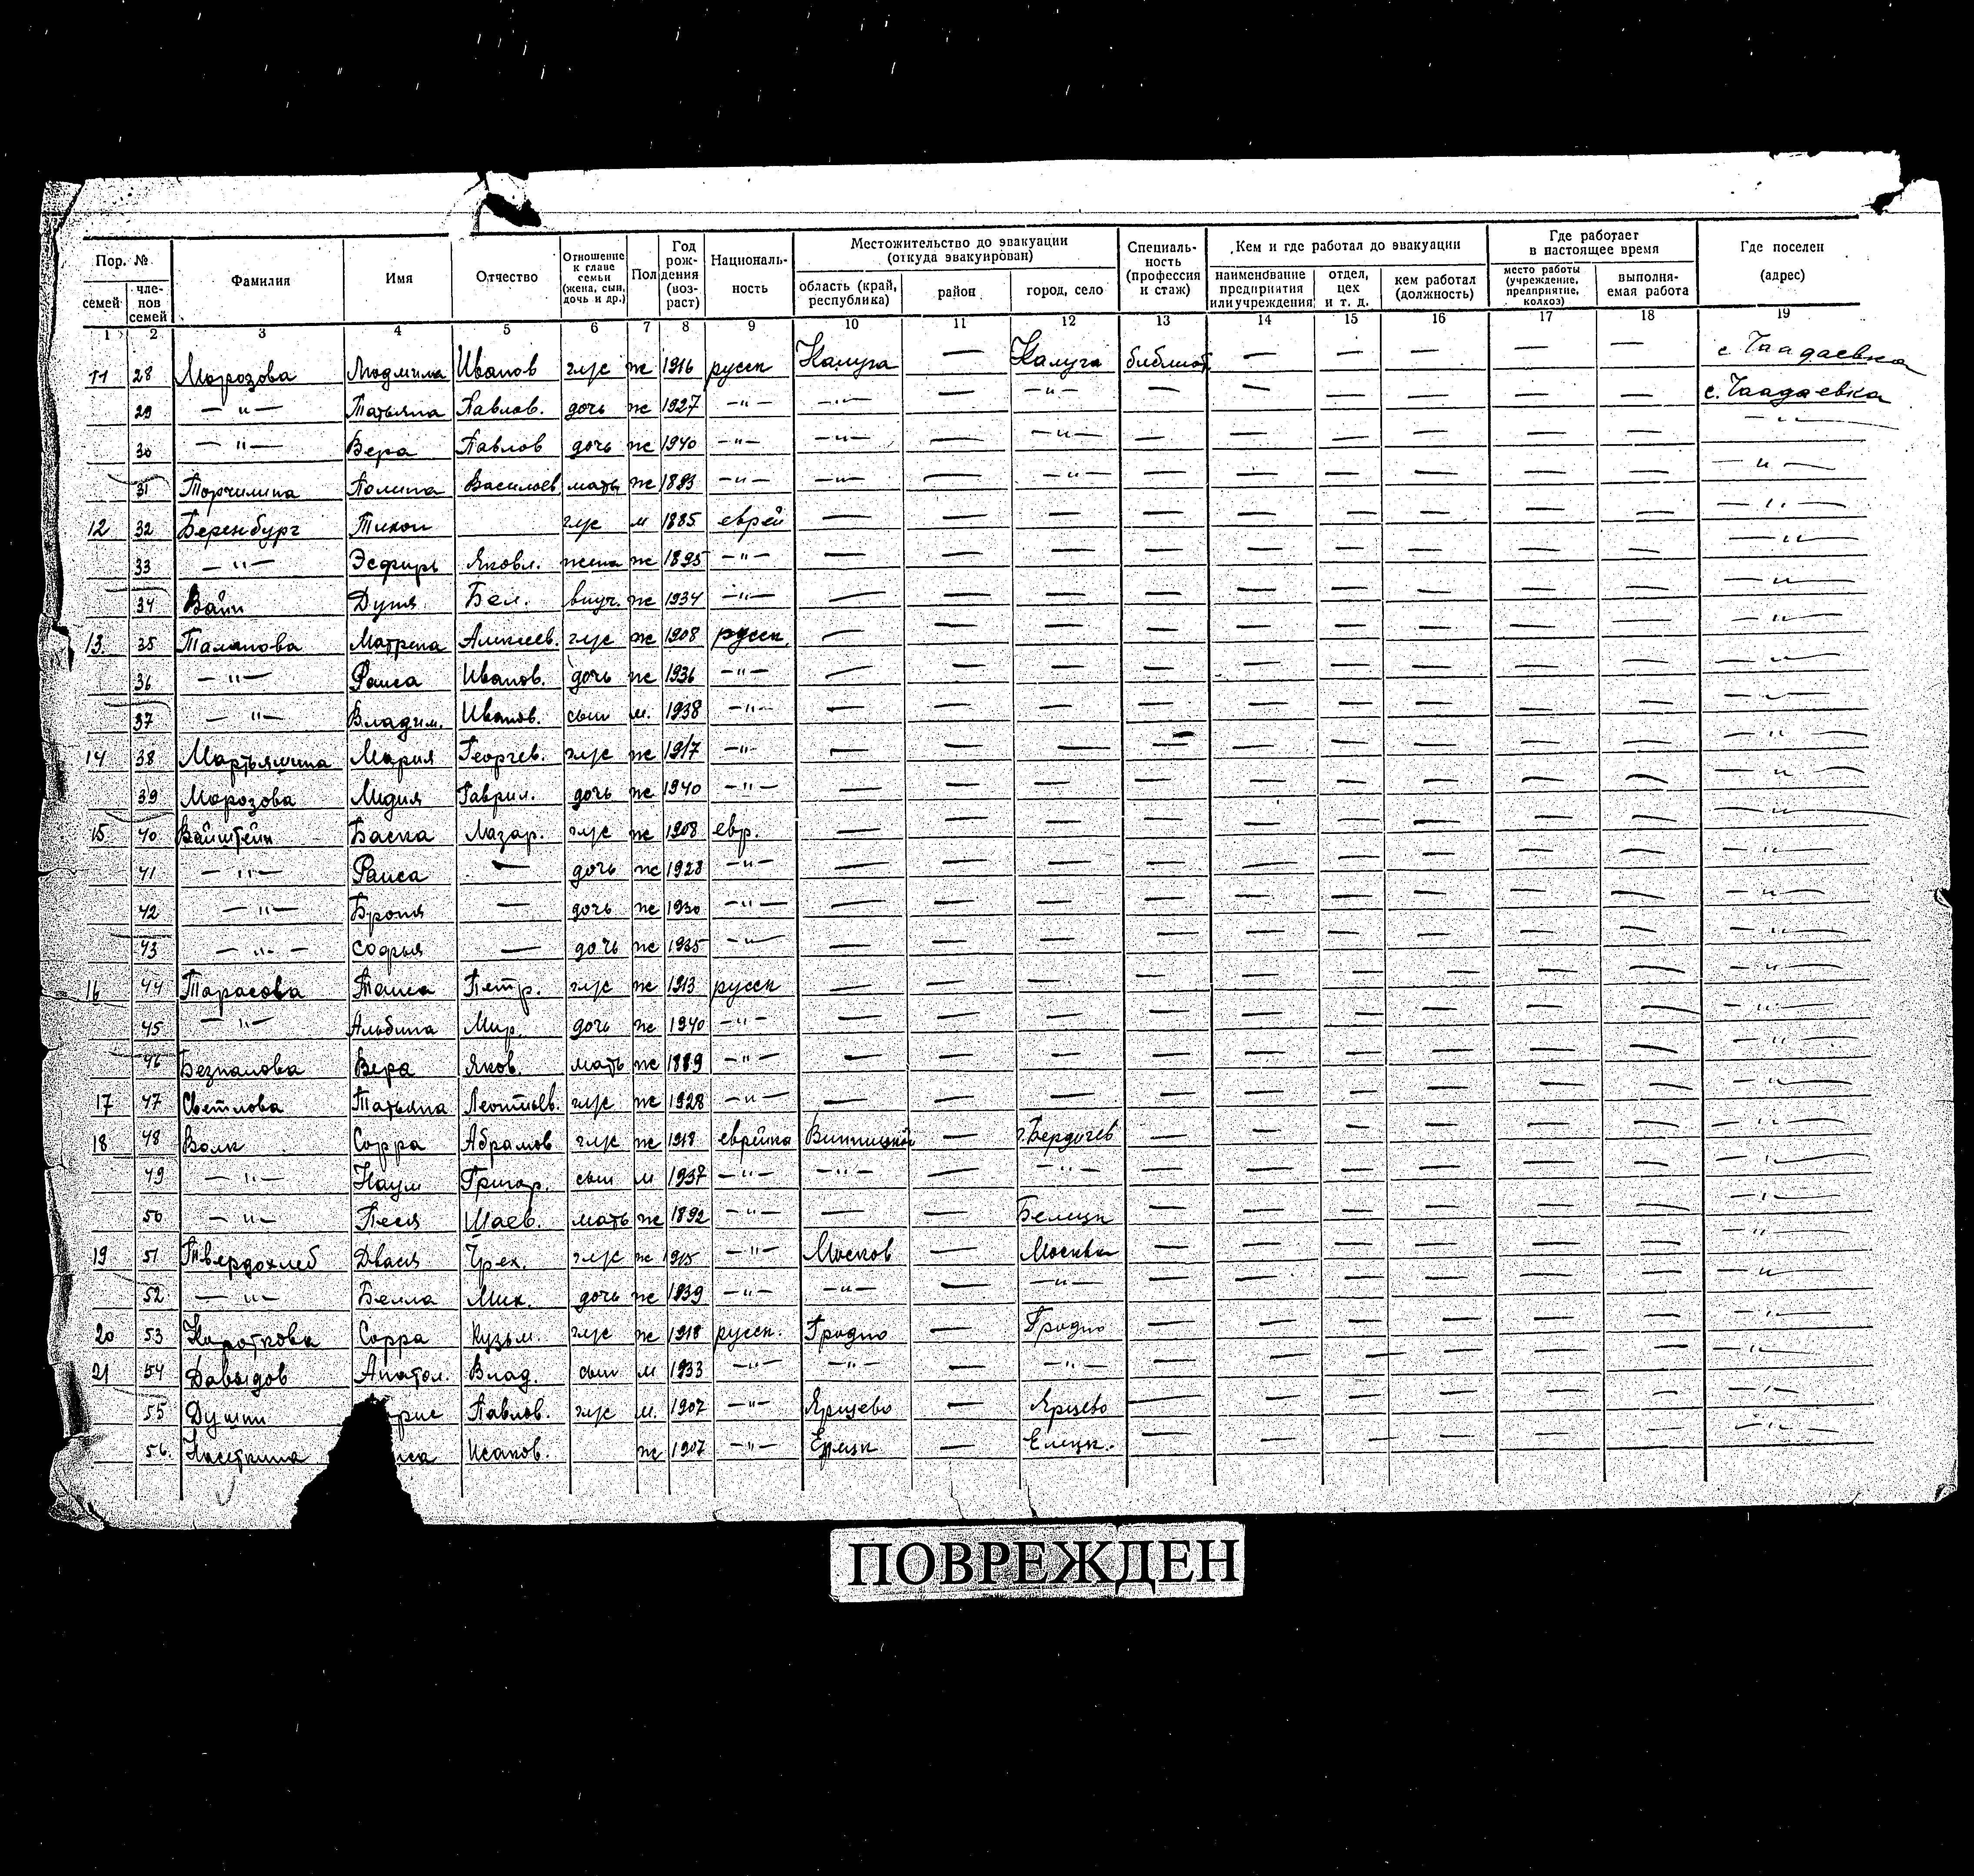 Пор. № Фамилия Имя Отчество Отношение к главе семьи (жена, сын, дочь и др.) Пол Год рождения (возраст) Националь-ность Местожительство до эвакуации (откуда эвакуирован) Специаль-ность (профессия и стаж) Кем и где работал до эвакуации Где работает в настоящее время Где поселен (адрес)
семей чле-нов семей область (край, республика) район город, село наименование предприятия или учреждения отдел, цех и т. д. кем работал (должность) место работы (учреждение, предприятие, колхоз) выполня-емая работа
1 2 3 4 5 6 7 8 9 10 11 12 13 14 15 16 17 18 19
11 28 Морозова Людмила Иванов глс ж 1916 русск Калуга — Калуга библиот — — — — — с Чаадаевка
29 — " — Татьяна Павлов. дочь ж 1927 — " — — " — — — " — — — — — — — с. Чаадаевка
30 — " — Вера Павлов дочь ж 1940 — " — — " — — — " — — — — — — — — " —
31 Торчилина Полина Васильев мать ж 1893 — " — — " — — — " — — — — — — — — " —
12 32 Беренбург глс м 1885 еврей — — — — — — — — — — " —
33 — " — Эсфирь Яковл. жена ж 1895 — " — — — — — — — — — — — " —
34 Вайн Дуня Бел. внуч. ж 1934 — " — — — — — — — — — — — " —
13 35 Таланова Матрена Алексеев. глс ж 1908 русск. — — — — — — — — — — " —
36 — " — Раиса Иванов. дочь ж 1936 — " — — — — — — — — — — — " —
37 — " — Владим. Иванов. сын м. 1938 — " — — — — — — — — — — — " —
14 38 Мария Георгев. глс ж 1917 — " — — — — — — — — — — — " —
39 Морозова Лидия Гаврил. дочь ж 1940 — " — — — — — — — — — — — " —
15 40 Вайнштейн Баска Лазар. глс ж 1908 евр. — — — — — — — — — — " —
41 — " — Раиса — дочь ж 1928 — " — — — — — — — — — — — " —
42 — " — Броня — дочь ж 1930 — " — — — — — — — — — — — " —
43 — " — Софья — дочь ж 1935 — " — — — — — — — — — — — " —
16 44 Тарасова Таиса Петр. глс ж 1913 русск — — — — — — — — — — " —
45 — " — Альбина Мир. дочь ж 1940 — " — — — — — — — — — — — " —
46 Безпалова Вера Яков. мать ж 1889 — " — — — — — — — — — — — " —
17 47 Светлова Татьяна Леонтьев. глс ж 1928 — " — — — — — — — — — — — " —
18 48 Волк Сорра Абрамов глс ж 1918 еврейка Винницкой — г. Бердичев — — — — — — — " —
49 — " — Наум Григор. сын м 1937 — " — — " — — — " — — — — — — — — " —
50 — " — Песя Шаев. мать ж 1892 — " — — — — — — — — — — " —
19 51 Твердохлеб Двася глс ж 1915 — " — Москов — Москва — — — — — — — " —
52 — " — Белла Мих. дочь ж 1939 — " — — " — — — " — — — — — — — — " —
20 53 Короткова Сорра Кузьм. глс ж 1918 русск. Гродно — Гродно — — — — — — — " —
21 54 Давыдов Анатол. Влад. сын м 1933 — " — — " — — — " — — — — — — — — " —
55 Павлов. глс м. 1907 — " — Ярцево — Ярцево — — — — — — — " —
56. Касаткина Исаков. ж 1907 — " — — Елецк. — — — — — — — " —
ПОВРЕЖДЕН